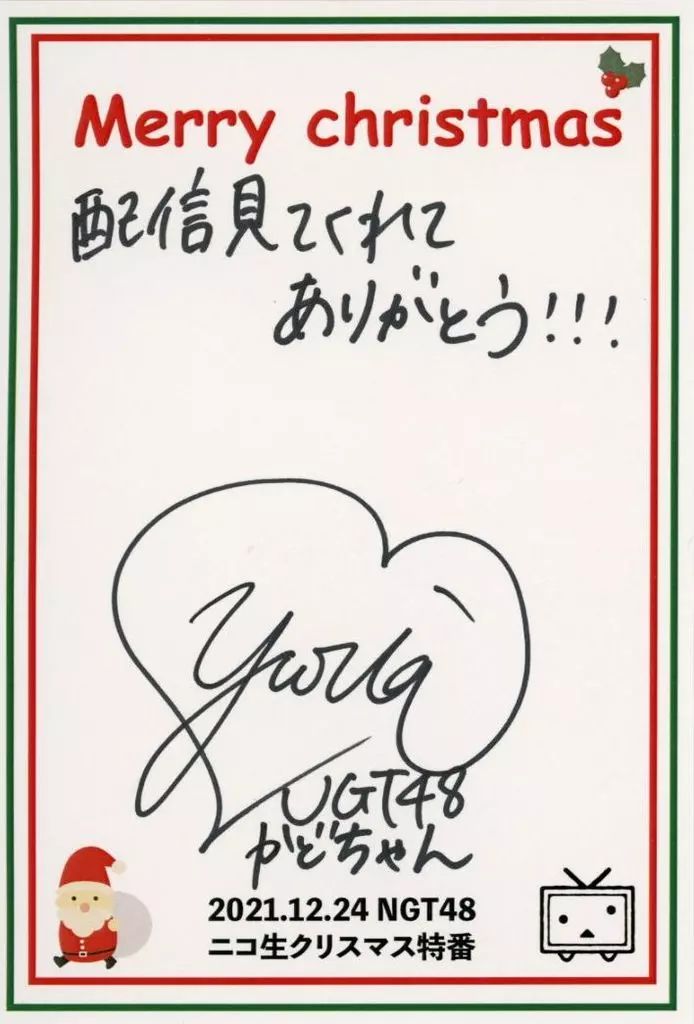 Merry christmas
配信見てくれて
ありがとう!!!
yuria
NGT48
かどちゃん
2021.12.24 NGT48
ニコ生クリスマス特番